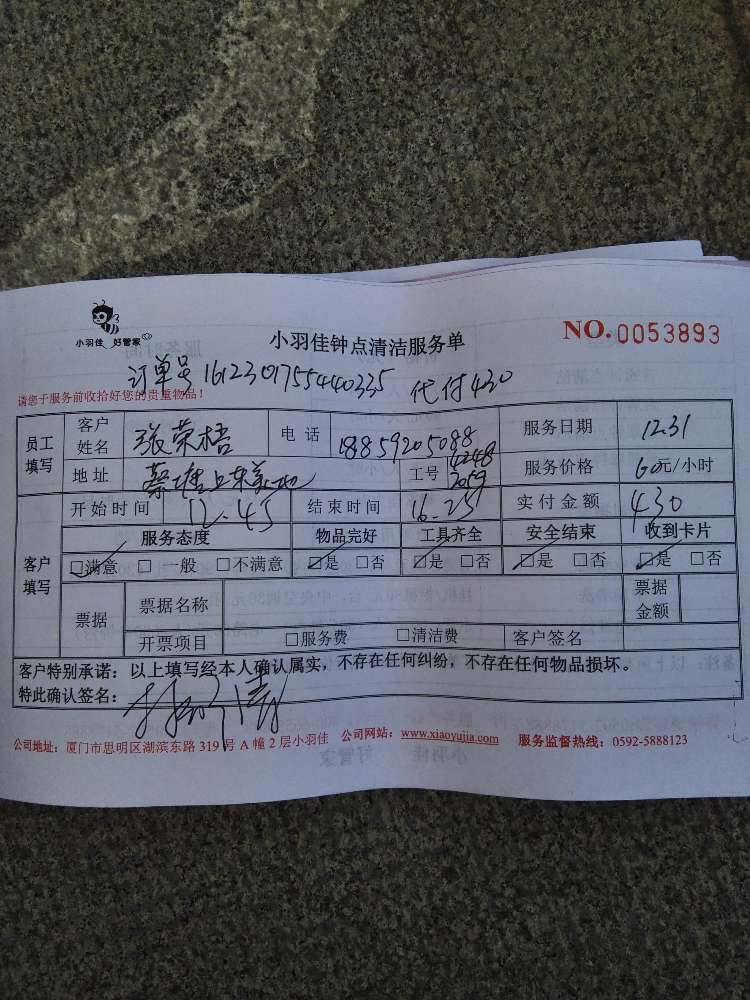 小羽佳 好管家
小羽佳钟点清洁服务单
NO. 0053893
订单号 161230175540335 代付430
请您于服务前收拾好您的贵重物品!
员工填写 客户姓名 张荣梧 电话 18859205088 服务日期 12.31
地址 工号 4248 2059 服务价格 60元/小时
开始时间 12.45 结束时间 16.25 实付金额 430
客户填写 服务态度 物品完好 工具齐全 安全结束 收到卡片
□满意 □一般 □不满意 □是 □否 □是 □否 □是 □否 □是 □否
票据 票据名称 票据金额
开票项目 □服务费 □清洁费 客户签名
客户特别承诺:以上填写经本人确认属实,不存在任何纠纷,不存在任何物品损坏。
特此确认签名:
公司地址:厦门市思明区湖滨东路 319 号 A 幢 2 层小羽佳 公司网站:www.xiaoyujia.com 服务监督热线:0592-5888123